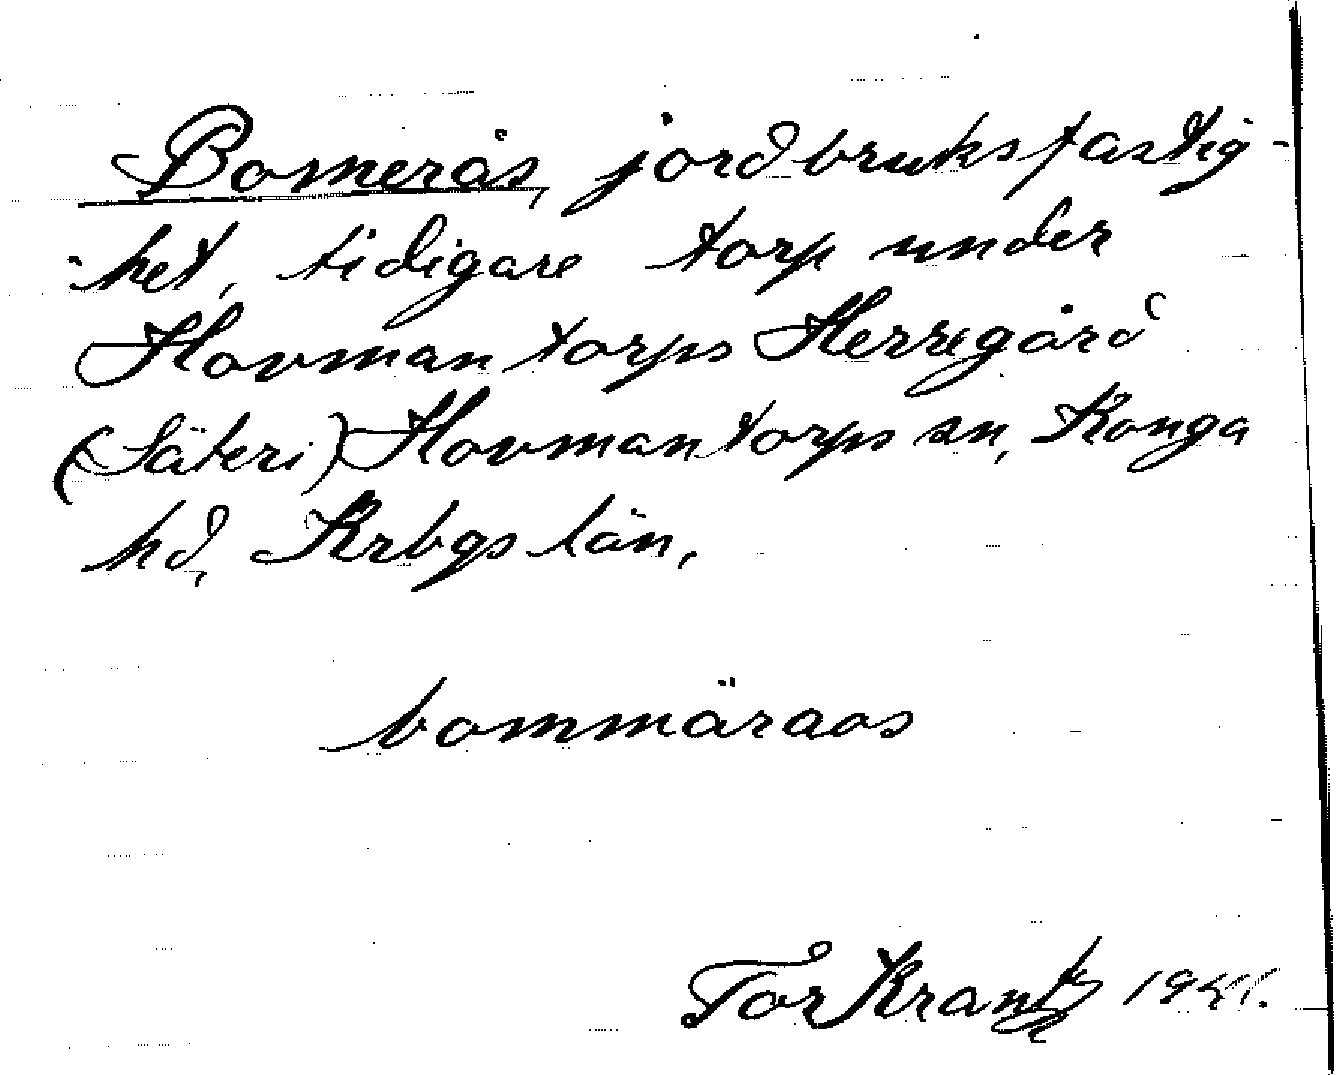 Bomerås, jordbruksfastig-
-het, tidigare torp under
Hovmantorps Herregård
(Säteri) Hovmantorps sn, Konga
hd, Krbgs län,
bommäraos
Tor Krantz